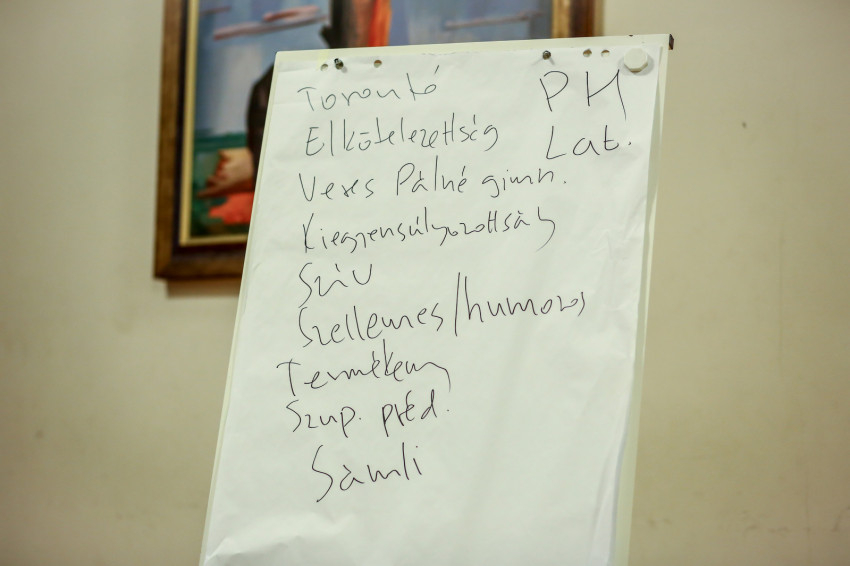 Torontó
Elkötelezettség
Veres Pálné gimn.
Kiegyensúlyozottság
Szív
Szellemes/humoros
Termékeny
Szup. préd.
Sámli
PH
Lat.